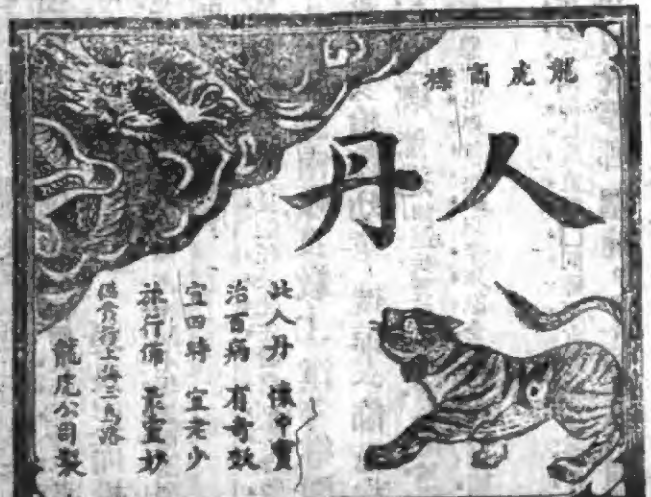 龍虎商標
人丹
此人丹 懷中寶
治百病 有奇效
宜四時 宜老少
旅行備 最宜妙
上海三馬路
龍虎公司製